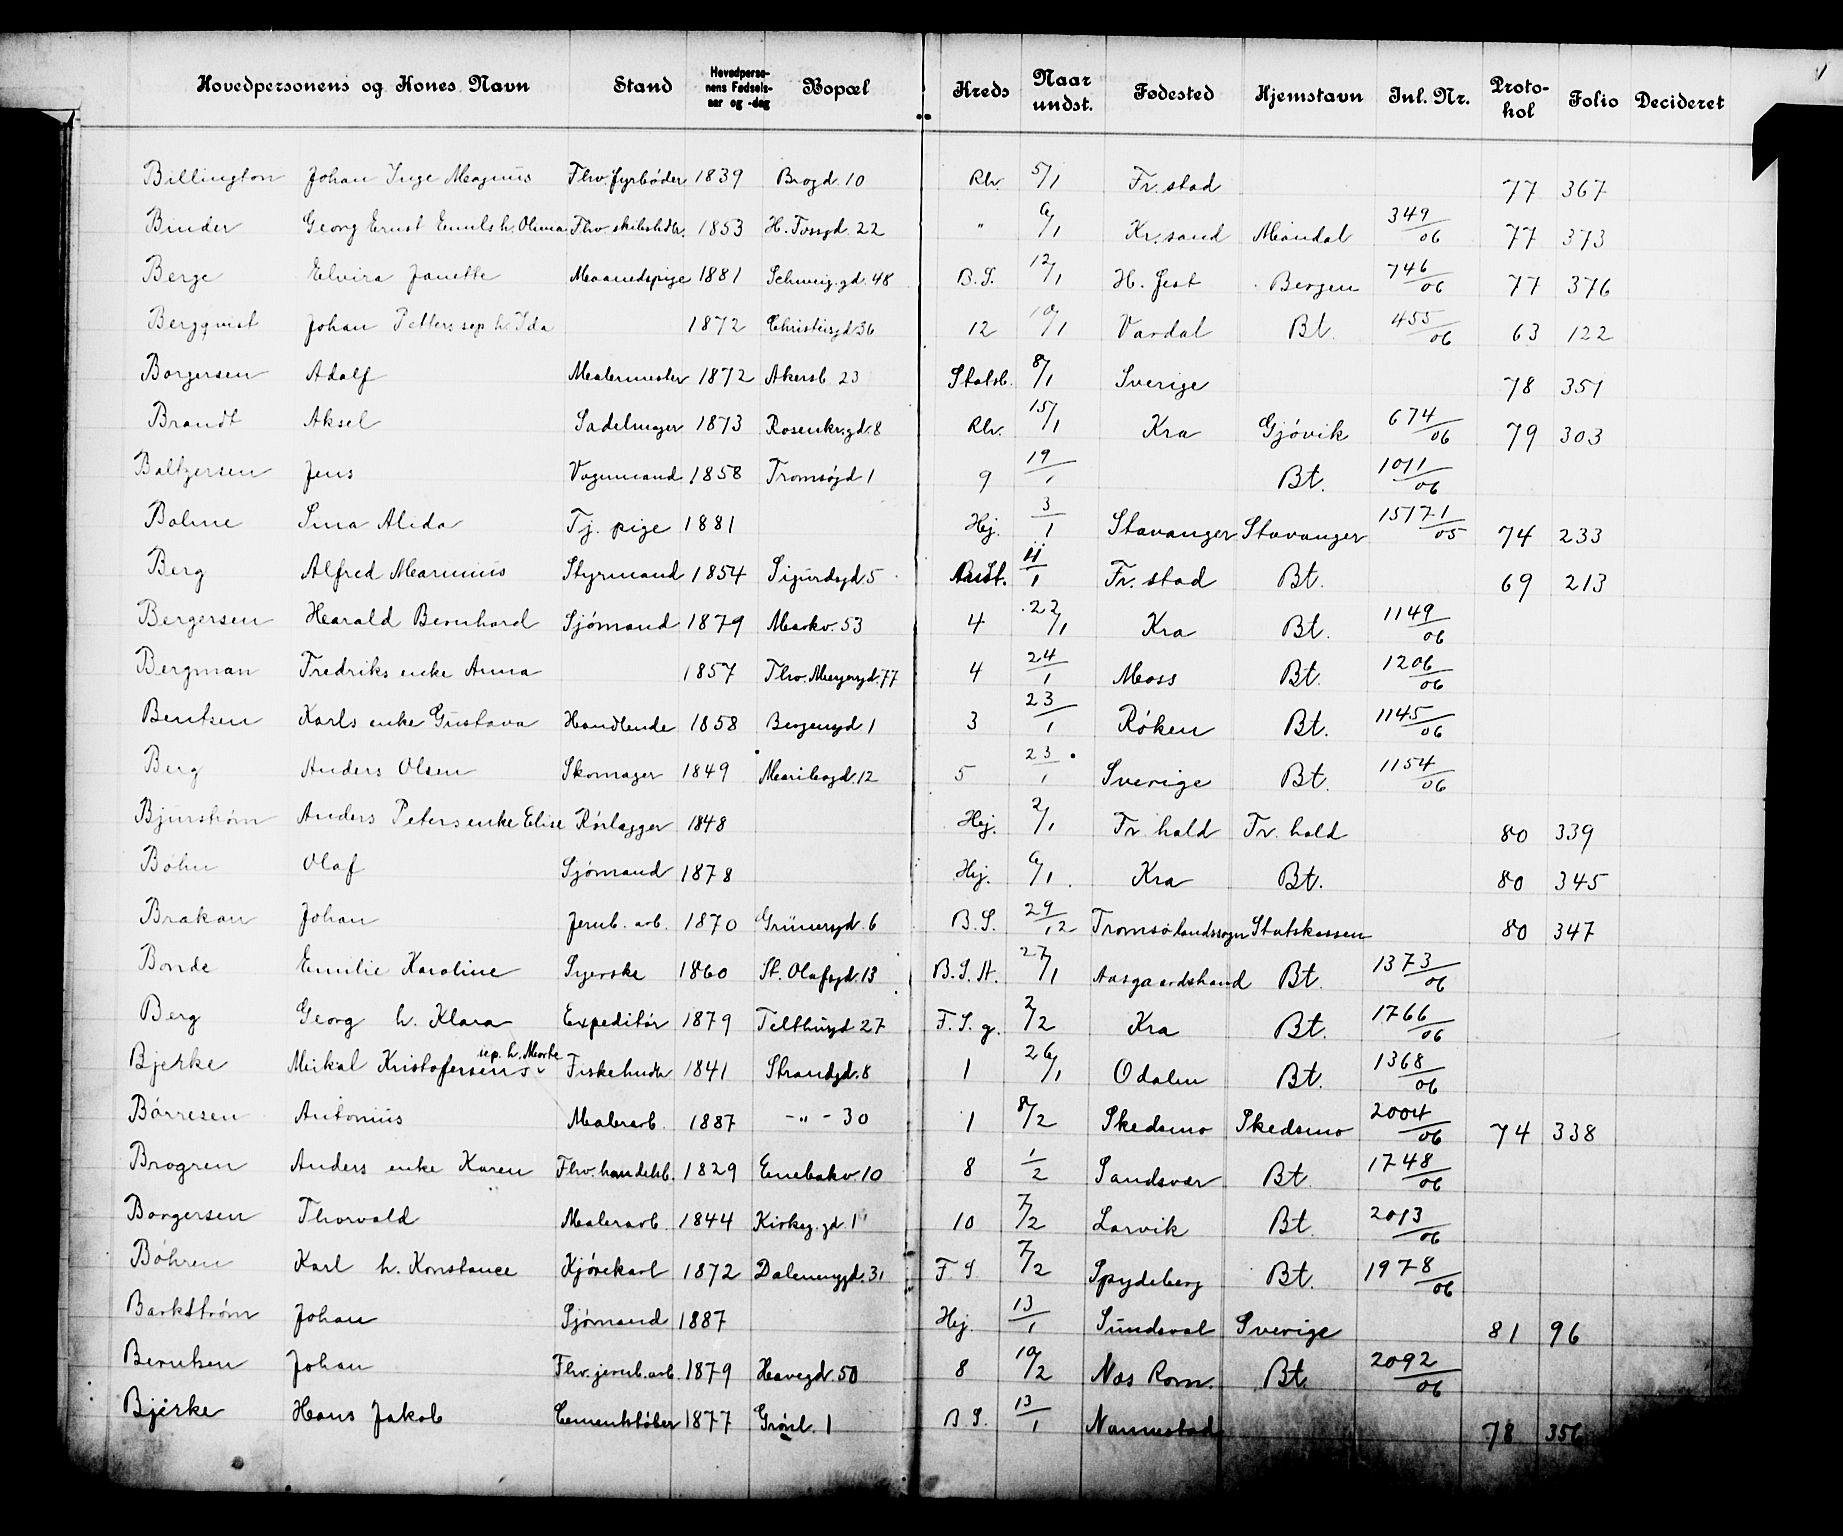 Hovedpersonens og Kones Navn Stand Hovedpersonens Fødselsaar og -dag Bopæl Kreds Naar undst. Fødested Hjemstavn Inl. Nr. Protokol Folio Decideret
Billington Johan Inge Magnus Fhv. fyrbøder 1839 Brogd. 10 Rhr. 5/1 Fr. stad 77 367
Binder Georg Ernst Emuls h. Olivia Fhv. skibshdlr. 1853 H. Tossgd. 22 " 6/1 Kr. sand Mandal 349/06 77 373
Berge Elvira Janette Maanedspige 1881 Schweig. gd. 48 B.S. 12/1 H. fest Bergen 746/06 77 376
Bergqvist Johan Petters sep. h. Ida 1872 Christiesgd. 36 12 10/1 Vardal Bt. 455/06 63 122
Borgersen Adolf Malermester 1872 Akersb. 23 Statsb. 8/1 Sverige 78 351
Brandt Aksel Sadelmager 1873 Rosenkr. gd. 8 Rhr. 15/1 Kra Gjøvik 674/06 79 303
Baltzersen Jens Vognmand 1858 Tromsøgd 1 9 19/1 Bt. 1011/06
Bolme Sina Alida Tj. pige 1881 Hej. 3/1 Stavanger Stavanger 15171/05 74 233
Berg Alfred Marinius Styrmand 1854 Sigurdsgd. 5 11/1 Fr. stad Bt. 69 213
Bergersen Harald Bernhard Sjømand 1879 Markv. 53 4 22/1 Kra Bt. 1149/06
Bergman Fredriks enke Anna 1857 Thv. Meyersgd. 77 4 24/1 Moss Bt. 1206/06
Bentsen Karls enke Gustava Handlende 1858 Bergensgd 1 3 23/1 Røken Bt. 1145/06
Berg Anders Olsen Skomager 1849 Maribogd. 12 5 23/1 Sverige Bt. 1154/06
Bjurstrøm Anders Peters enke Elise Rørlægger 1848 Hej. 2/1 Fr. hald Fr. hald 80 339
Bøhn Olaf Sjømand 1878 Hej. 6/1 Kra Bt. 80 345
Brakan Johan Jernb. arb. 1870 Grünersgd. 6 B.S. 29/12 Tromsø landssogn Statskassen 80 347
Bonde Emilie Karoline Syerske 1860 St. Olafsgd. 13 B.S.A. 27/1 Aasgaardstrand Bt. 1373/06
Berg Georg h. Klara Expeditør 1879 Telthusgd 27 F.S.g. 2/2 Kra Bt. 1766/06
Bjerke Mikal Kristofersens sep. h. Marte Fiskehndlr 1841 Strandgd. 8 1 26/1 Odalen Bt. 1368/06
Børresen Antonius Malerarb. 1887 - " - 30 1 8/2 Skedsmo Skedsmo 2004/06 74 338
Brogren Anders enke Karen Fhv. handelsb. 1829 Enebakv. 10 8 1/2 Sandsvær Bt. 1748/06
Borgersen Thorvald Malerarb. 1844 Kirkeg. gd. 1 10 7/2 Larvik Bt. 2013/06
Bøhren Karl h. Konstance Kjørekarl 1872 Dalenenggd. 31 F.S. 7/2 Spydeberg Bt. 1978/06
Barkstrøm Johan Sjømand 1887 Hej. 13/1 Sundsval Sverige 81 96
Berntsen Johan Fhv. jernb. arb. 1879 Havegd. 50 8 10/2 Næs Rom. Bt. 2092/06
Bjerke Hans Jakob Cementstøber 1877 Grønl. 1 B.S. 13/1 Nannestad 78 356